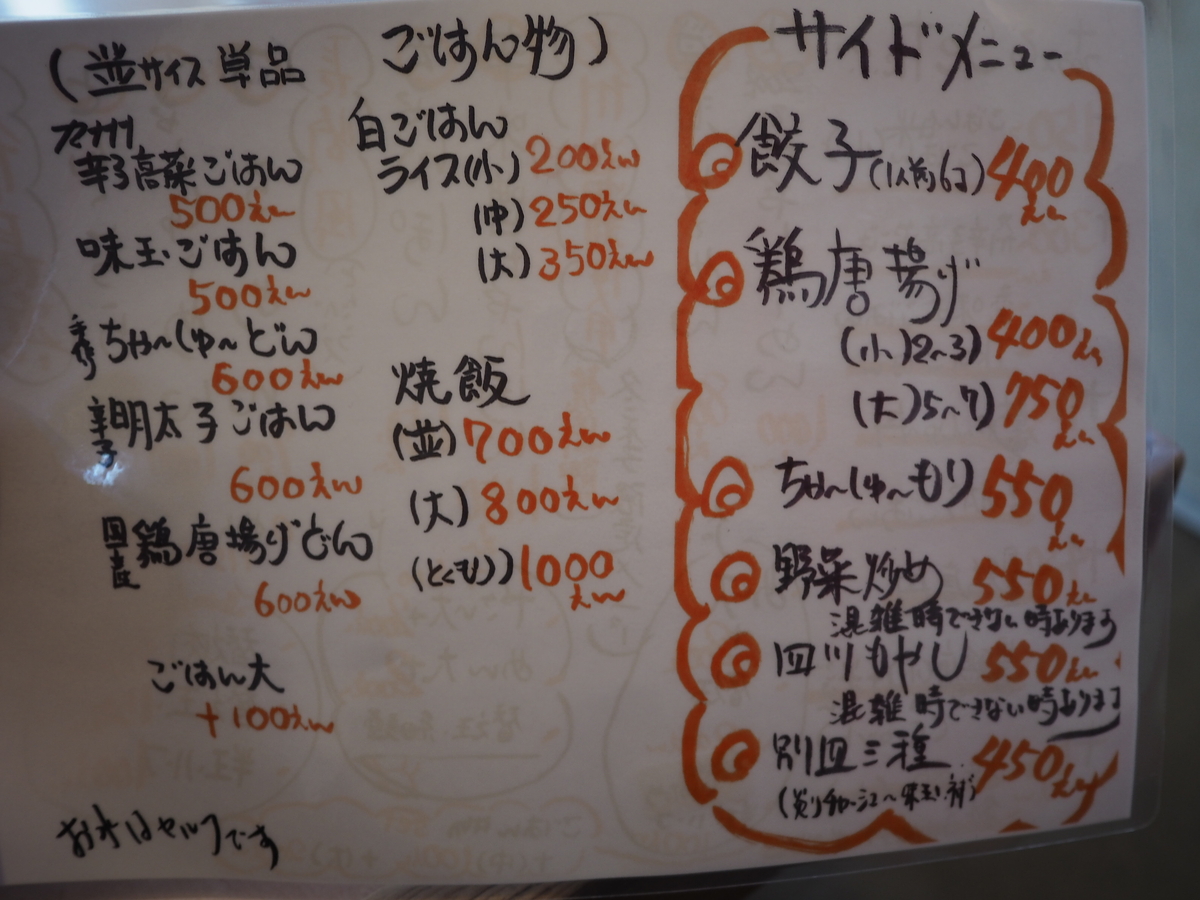 (並サイズ単品 ごはん物)
九州
辛子高菜ごはん
500えん
味玉ごはん
500えん
ちゃ〜しゅ〜どん
600えん
辛子明太子ごはん
600えん
国産鶏唐揚げどん
600えん
ごはん大
+100えん
お水はセルフです
白ごはん
ライス(小)200えん
(中)250えん
(大)350えん
焼飯
(並)700えん
(大)800えん
(とくもり)1000えん
サイドメニュー
餃子(1人前6コ)400えん
鶏唐揚げ
(小)2〜3)400えん
(大)5〜7)750えん
ちゃ〜しゅ〜もり550えん
野菜炒め 550えん
混雑時できない時あります
四川もやし 550えん
混雑時できない時あります
別皿三種 450えん